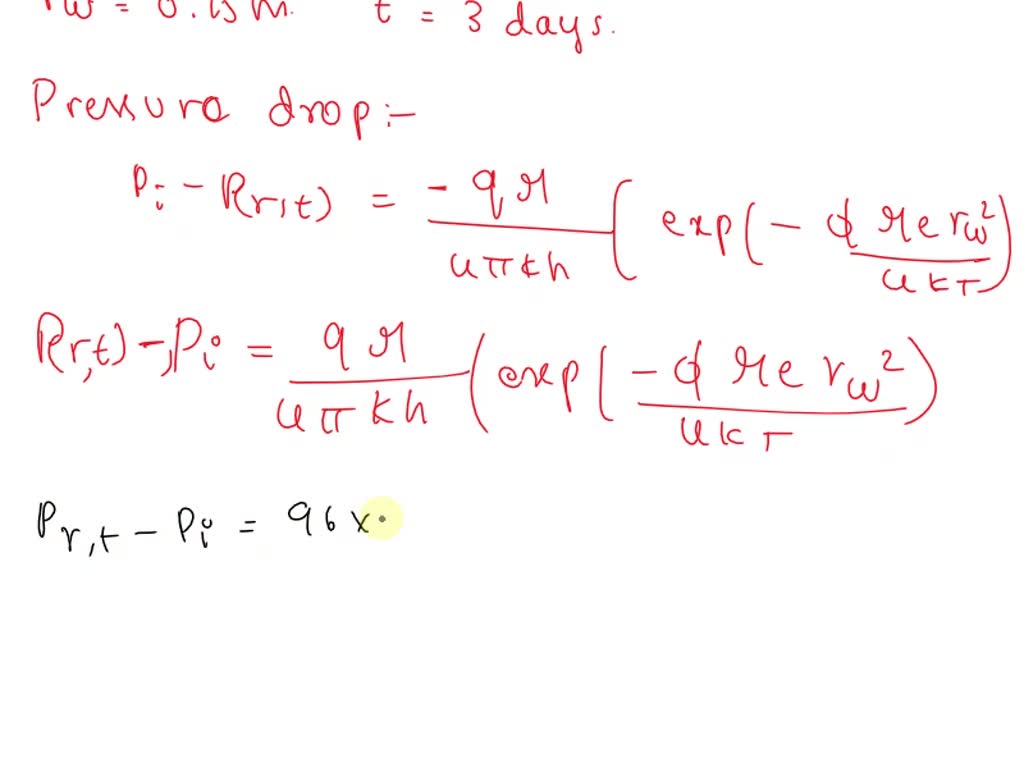 rw = 0.15m. t = 3 days.
Pressure drop:-
Pi - P(r,t) = - q μ / 4πkh ( exp ( - ϕ μ c rw² / 4kt )
P(r,t) - Pi = q μ / 4πkh ( exp ( - ϕ μ c rw² / 4kt )
Pr,t - Pi = 96 x